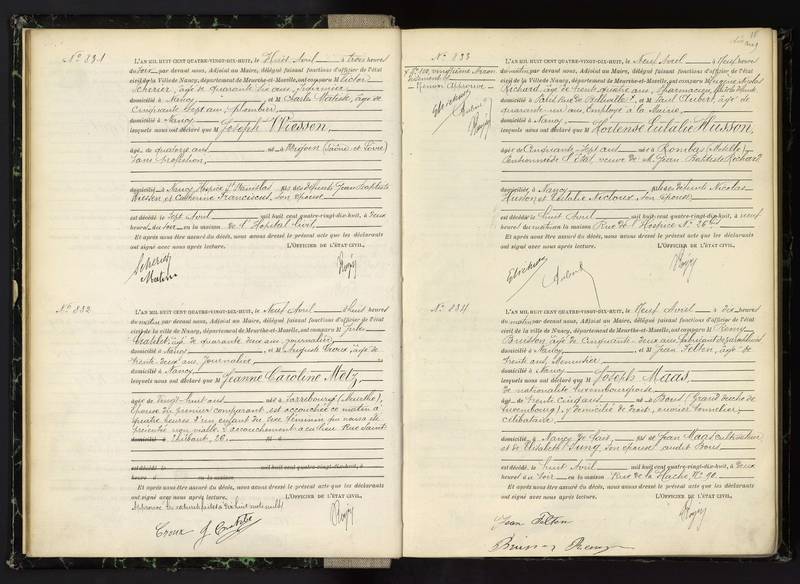 N° 831
L'AN MIL HUIT CENT QUATRE-VINGT-DIX-HUIT, le Huit Avril à trois heures
du soir par devant nous, Adjoint au Maire, délégué faisant fonctions d'officier de l'état
civil de la Ville de Nancy, département de Meurthe-et-Moselle, ont comparu M Victor
Scherier, âgé de quarante six ans, infirmier
domicilié à Nancy et M Charles Mathieu, âgé de
Cinquante sept ans, plombier
domicilié à Nancy
lesquels nous ont déclaré que M Joseph Wiesson,
âgé de quatorze ans né à (Saône et Loire)
sans profession,
domicilié à Nancy Hospice St Stanislas fils des défunts Jean Baptiste
Wiesson et Catherine Franciscus, son épouse
est décédé le Sept Avril mil huit cent quatre-vingt-dix-huit, à deux
heures du soir en la maison de l'Hôpital Civil,
Et après nous être assuré du décès, nous avons dressé le présent acte que les déclarants
ont signé avec nous après lecture. L'OFFICIER DE L'ÉTAT CIVIL,
N° 832
L'AN MIL HUIT CENT QUATRE-VINGT-DIX-HUIT, le Neuf Avril à huit heures
du matin par devant nous, Adjoint au Maire, délégué faisant fonctions d'officier de l'état
civil de la ville de Nancy, département de Meurthe-et-Moselle, ont comparu M Jules
âgé de quarante deux ans, journalier
domicilié à Nancy, et M Auguste Croux âgé de
trente deux ans, Journalier
domicilié à Nancy
lesquels nous ont déclaré que M Jeanne Caroline Metz,
âgée de Vingt-huit ans née à Sarrebourg (Meurthe),
épouse du premier comparant, est accouchée ce matin à
quatre heures d'un enfant du sexe féminin qui nous a été
présenté non viable. L'accouchement a eu lieu Rue Saint
domicilié à Thiébaut, 26. fil d
est décédé le mil huit cent quatre-vingt-dix-huit, à
heure d en la maison
Et après nous être assuré du décès, nous avons dressé le présent acte que les déclarants
ont signé avec nous après lecture. L'OFFICIER DE L'ÉTAT CIVIL,
Croux
N° 833
L'AN MIL HUIT CENT QUATRE-VINGT-DIX-HUIT, le Neuf Avril à Neuf heures
du matin par devant nous, Adjoint au Maire, délégué faisant fonctions d'officier de l'état
civil de la Ville de Nancy, département de Meurthe-et-Moselle, ont comparu M Eugène Nicolas
Richard, âgé de trente quatre ans, Pharmacien
domicilié à Paris Rue de Belleville et M Paul Aubert, âgé de
quarante un ans, Employé à la Mairie,
domicilié à Nancy,
lesquels nous ont déclaré que M Hortense Eulalie Husson,
âgée de Cinquante-sept ans née à (Moselle),
Pensionnée de l'État veuve de M. Jean Baptiste Richard
domiciliée à Nancy fille de défunts Nicolas
Husson et Eulalie Nicloux, son épouse
est décédée le huit Avril mil huit cent quatre-vingt-dix-huit, à neuf
heures du matin en la maison Rue de l'Hospice N° 26
Et après nous être assuré du décès, nous avons dressé le présent acte que les déclarants
ont signé avec nous après lecture. L'OFFICIER DE L'ÉTAT CIVIL,
N° 834
L'AN MIL HUIT CENT QUATRE-VINGT-DIX-HUIT, le Neuf Avril à Dix heures
du matin par devant nous, Adjoint au Maire, délégué faisant fonctions d'officier de l'état
civil de la ville de Nancy, département de Meurthe-et-Moselle, ont comparu M Remy
âgé de Cinquante-deux ans, fabricant de
domicilié à Nancy, et M Jean Felten, âgé de
trente ans, Menuisier
domicilié à Nancy
lesquels nous ont déclaré que M Joseph Maas,
de nationalité luxembourgeoise,
âgé de trente cinq ans né à Bous (Grand duché de
Luxembourg), y domicilié de droit, ouvrier tonnelier,
célibataire
domicilié à Nancy de fait, fils de Jean Maas cultivateur
et de Elisabeth Jung, son épouse, audit Bous
est décédé le huit Avril mil huit cent quatre-vingt-dix-huit, à deux
heures du soir en la maison Rue de la Hache, N° 90
Et après nous être assuré du décès, nous avons dressé le présent acte que les déclarants
ont signé avec nous après lecture. L'OFFICIER DE L'ÉTAT CIVIL,
Jean Felten